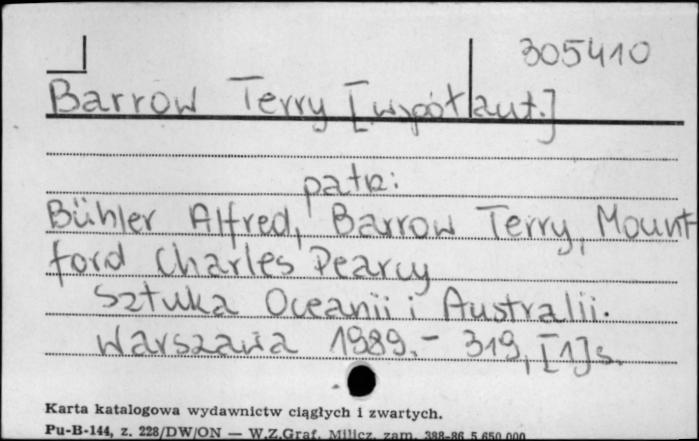 305410
Barrow Terry [współaut.]
patrz:
Bühler Alfred, Barrow Terry, Mount-
ford Charles Pearcy
Sztuka Oceanii i Australii.
Warszawa 1989.- 319, [1] s.
Karta katalogowa wydawnictw ciągłych i zwartych.
Pu-B-144, z. 228/DW/ON — W.Z.Graf. Milicz, zam. 388-86 5 650 000